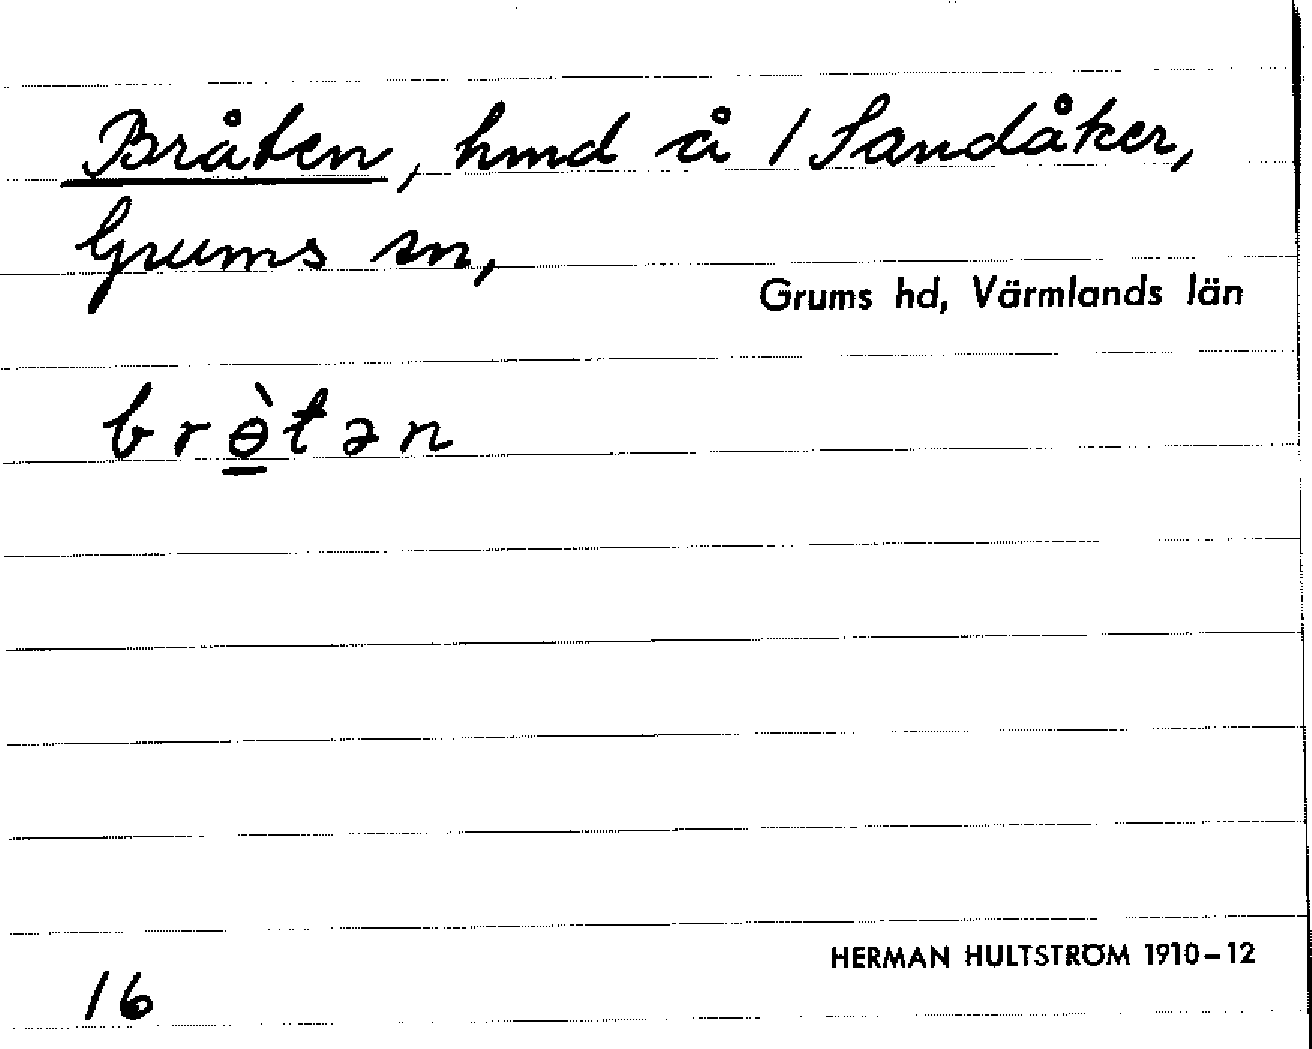 Bråten, hmd å 1 Sandåker,
Grums sn,
Grums hd, Värmlands län
brɵ̱̀tən
16
HERMAN HULTSTRÖM 1910–12